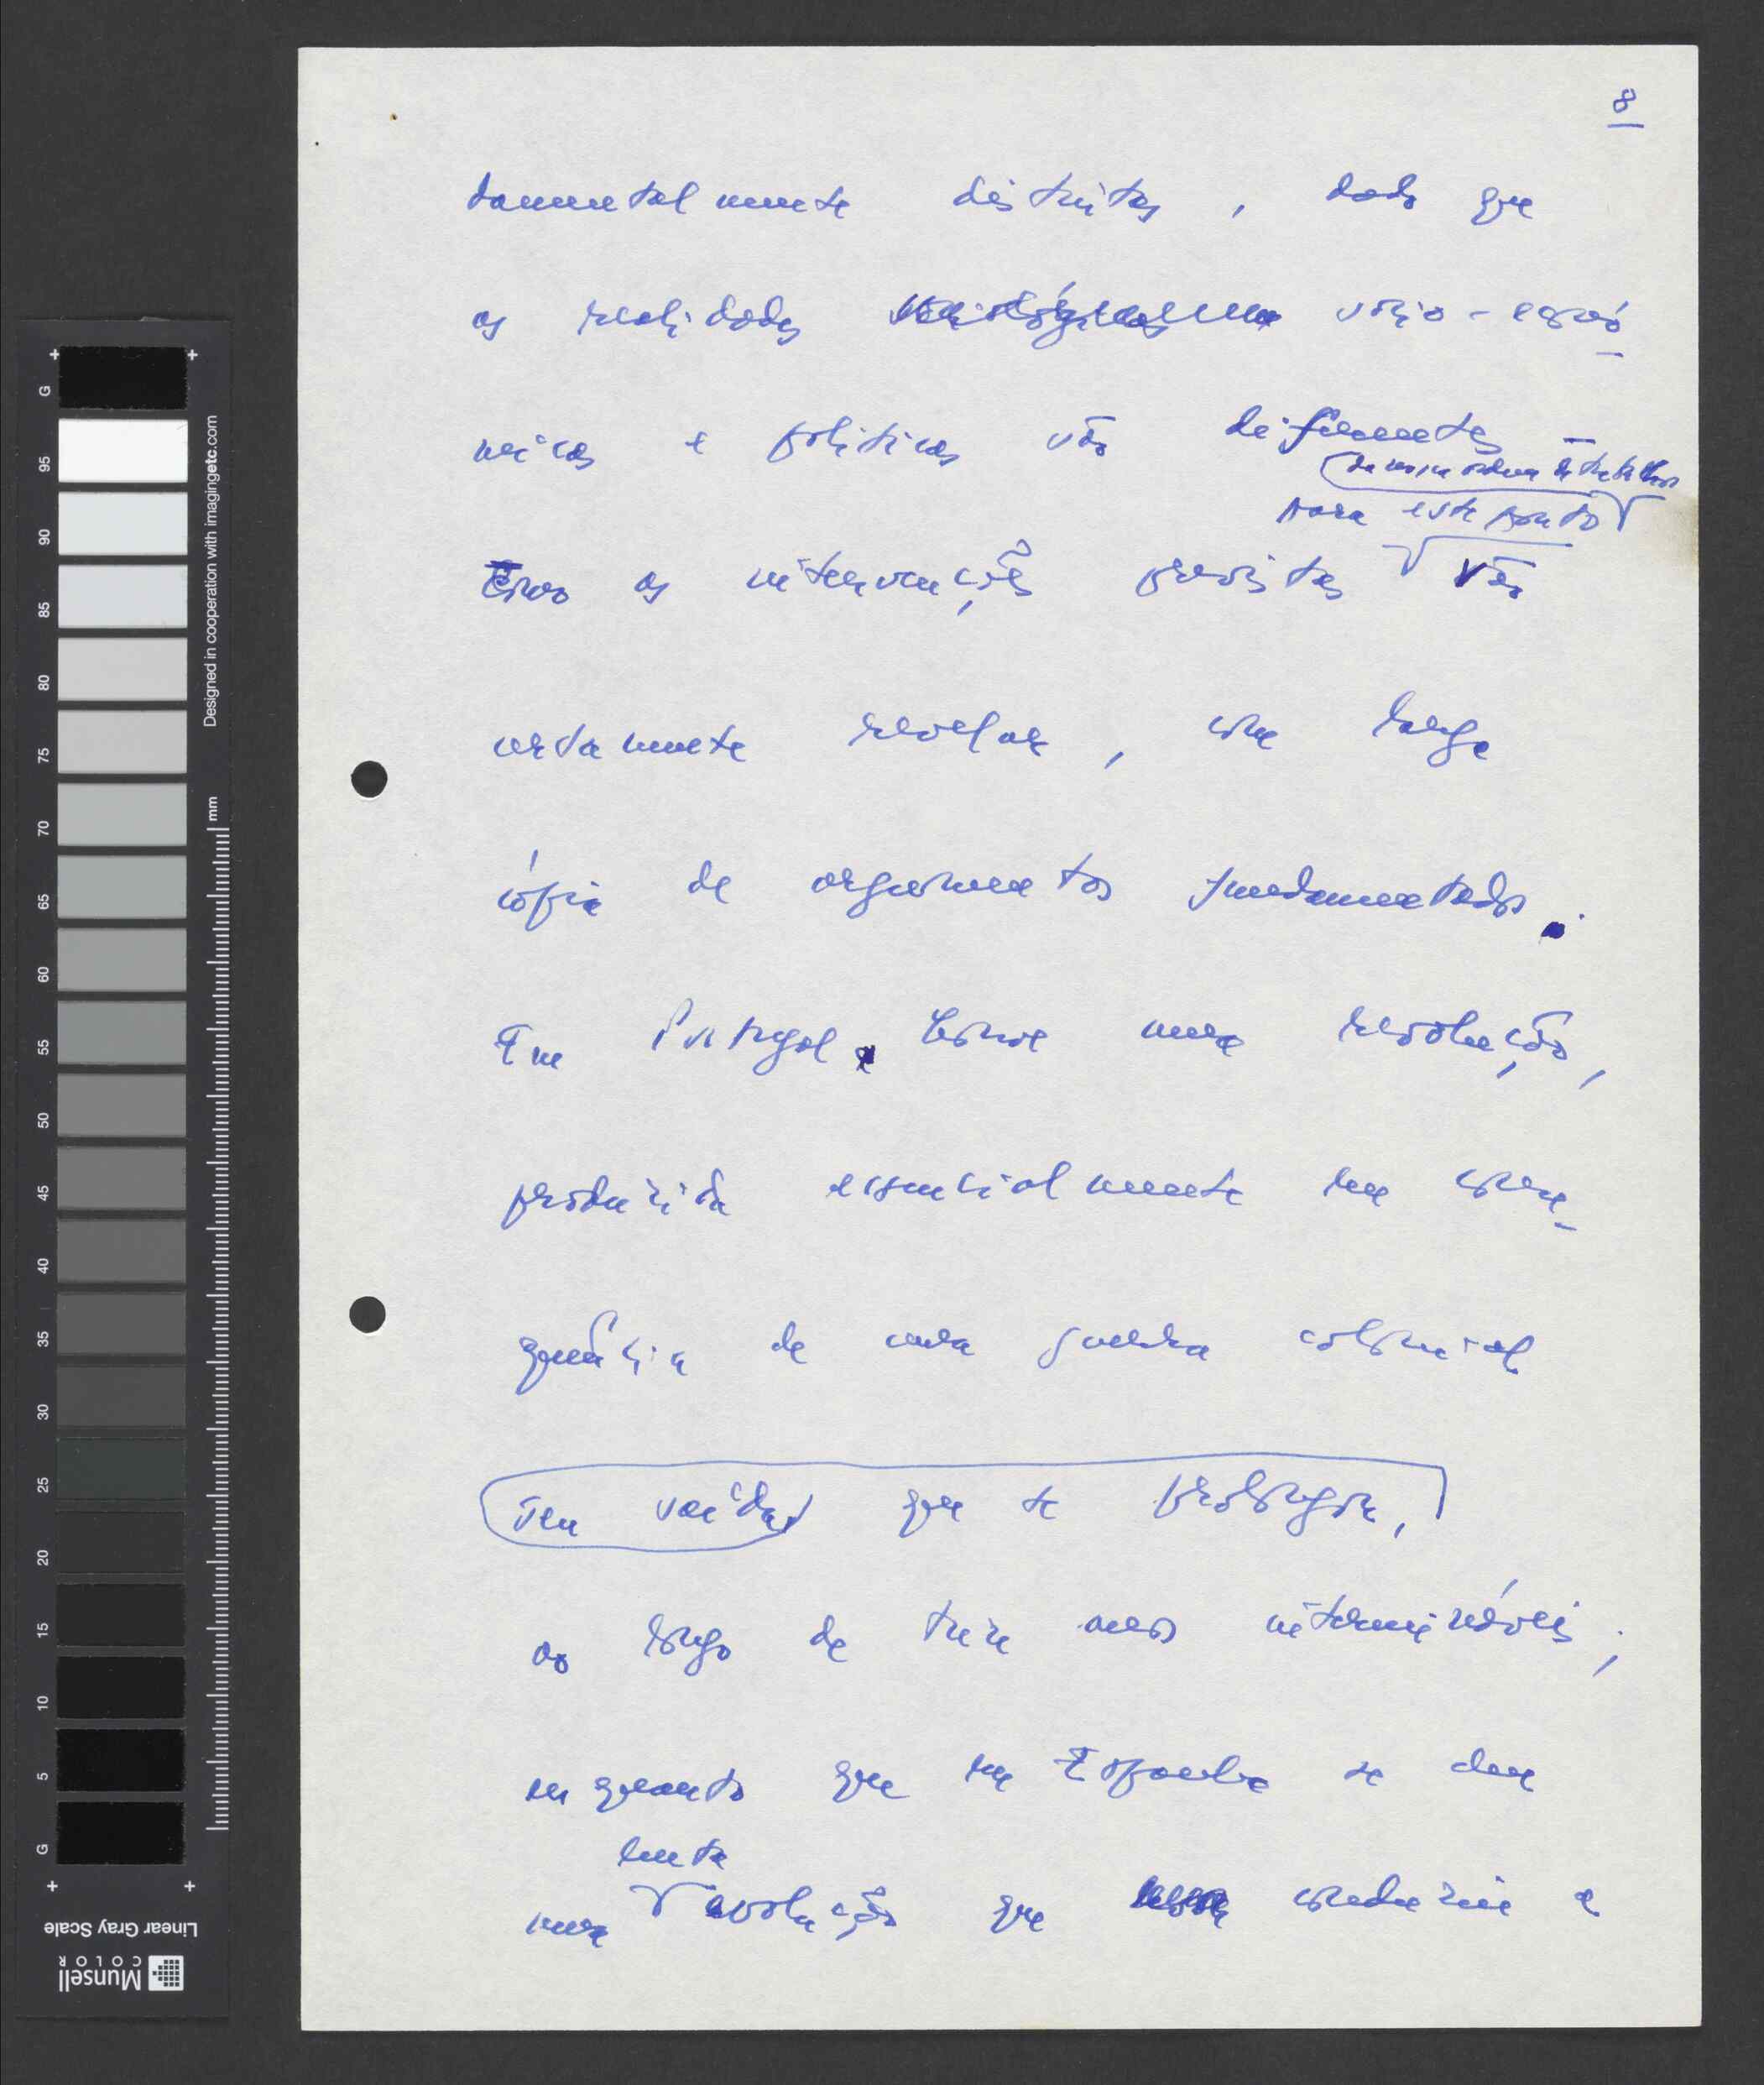 8
damentalmente distintas, dado que
as realidades sócio-econó
micas e politicas são diferentes –
da nossa ordem de trabalhos
para este ponto
Como as intervenções previstas vão
certamente revelar, com larga
cópia de argumentos fundamentados.
Em Portugal houve uma revolução,
produzida essencialmente em conse-
quência de uma guerra colonial
sem saída que se prolongou,
ao longo de treze anos intermináveis;
enquanto que em Espanha se deu
lenta
uma evolução que conduziu a
G
95
90
85
80
75
70
65
60
55
50
45
40
35
30
25
20
15
10
5
G
mm
Designed in cooperation with imagingetc.com
Linear Gray Scale
Munsell
COLOR